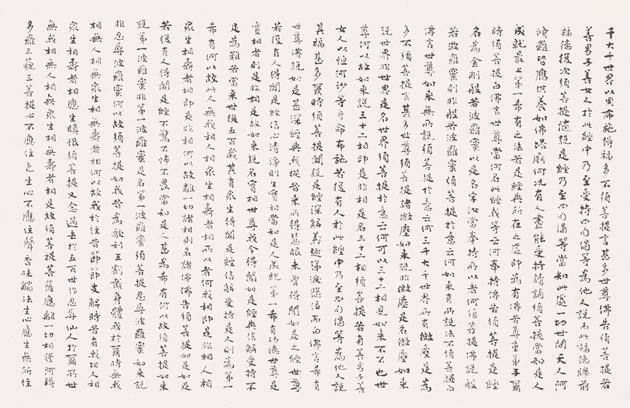 千大千世界以用布施得福多不須菩提言甚多世尊佛告須菩提若
善男子善女人於此經中乃至受持四句偈等為他人說而此福德勝前
福德復次須菩提隨說是經乃至四句偈等當知此處一切世間天人阿
脩羅皆應供養如佛塔廟何況有人盡能受持讀誦須菩提當知是人
成就最上第一希有之法若是經典所在之處即為有佛若尊重弟子爾
時須菩提白佛言世尊當何名此經我等云何奉持佛告須菩提是經
名為金剛般若波羅蜜以是名字汝當奉持所以者何須菩提佛說般
若波羅蜜則非般若波羅蜜須菩提於意云何如來有所說法不須菩提白
佛言世尊如來無所說須菩提於意云何三千大千世界所有微塵是為
多不須菩提言甚多世尊須菩提諸微塵如來說非微塵是名微塵如來
說世界非世界是名世界須菩提於意云何可以三十二相見如來不不也世
尊何以故如來說三十二相即是非相是名三十二相須菩提若有善男子善
女人以恒河沙等身命布施若復有人於此經中乃至受持四句偈等為他人說
其福甚多爾時須菩提聞說是經深解義趣涕淚悲泣而白佛言希有
世尊佛說如是甚深經典我從昔來所得慧眼未曾得聞如是之經世尊
若復有人得聞是經信心清淨則生實相當知是人成就第一希有功德世尊是
實相者則是非相是故如來說名實相世尊我今得聞如是經典信解受持不
足為難若當來世後五百歲其有眾生得聞是經信解受持是人則為第一
希有何以故此人無我相人相眾生相壽者相所以者何我相即是非相人相
眾生相壽者相即是非相何以故離一切諸相則名諸佛佛告須菩提如是如是
若復有人得聞是經不驚不怖不畏當知是人甚為希有何以故須菩提如來
說第一波羅蜜非第一波羅蜜是名第一波羅蜜須菩提忍辱波羅蜜如來說
非忍辱波羅蜜何以故須菩提如我昔為歌利王割截身體我於爾時無我
相無人相無眾生相無壽者相何以故我於往昔節節支解時若有我相人相
眾生相壽者相應生瞋恨須菩提又念過去於五百世作忍辱仙人於爾所世
無我相無人相無眾生相無壽者相是故須菩提菩薩應離一切相發阿耨
多羅三藐三菩提心不應住色生心不應住聲香味觸法生心應生無所住